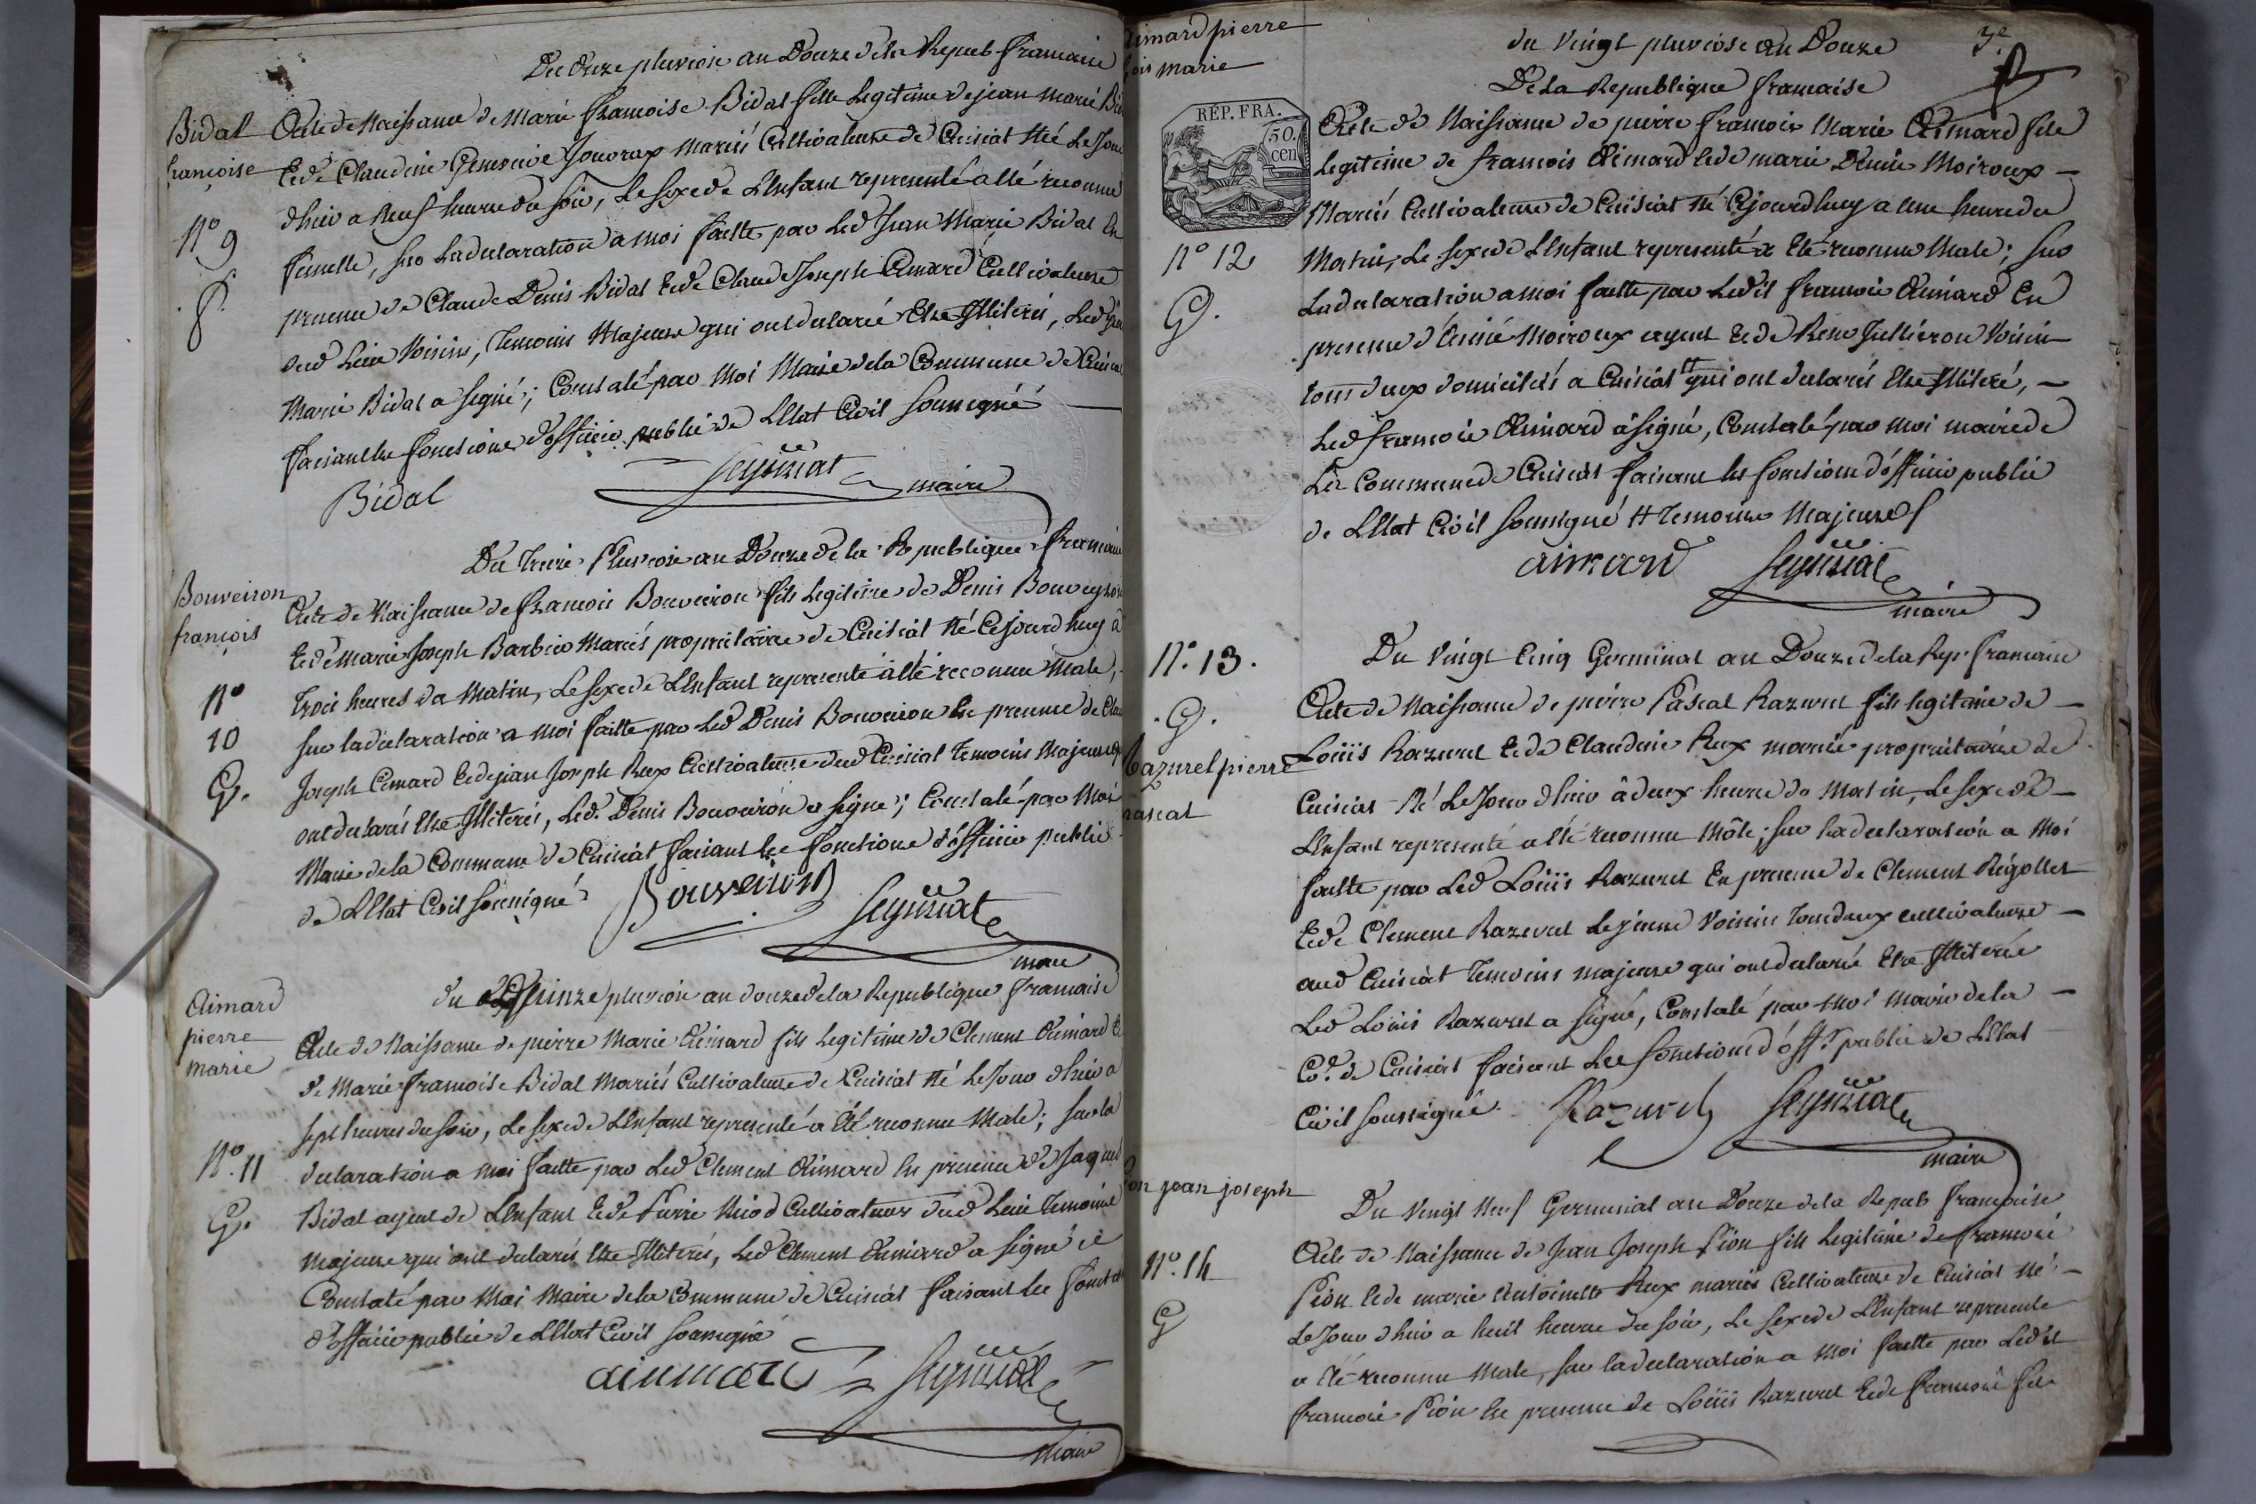 Du Onze pluviose an Douze de la Repub francaise
Bidal
françoise
Nº 9
Acte de Naissance de Marie francoise Bidal fille Legitime de jean marie
Et de Claudine Genevive Jouvray Mariés Cultivateurs de Cuisiat Née Le Jour
dhier a Neuf heures du soir, Le sexe de L'Enfant representé a été reconnu
femelle, sur La declaration a moi faitte par Led Jean Marie Bidal En
presence de Claude Denis Bidal Et de Claude Joseph Aimard Cultivateurs
dud Lieu Voisins, Temoins Majeurs qui ont declaré Etre Illiterés, Led
Marie Bidal a signé; Constaté par Moi Maire de la Commune de
faisant les fonctions d'officier public de L'Etat Civil soussigné
Bidal
maire
Du Treize Pluviose an Douze de la Republique
Bouveiron
françois
Nº
10
G.
Acte de Naissance de francois Bouveiron fils Legitime de Denis
Et de Marie Joseph Barbier Mariés proprietaires de Cuisiat Né Cejourdhuy a
Trois heures du Matin, Le sexe de L'Enfant representé a été reconnu Male,
sur la declaration a moi faitte par Led Denis Bouveiron En presence de
Joseph Aimard Et de jean Joseph Rux Cultivateurs dud Cuisiat Temoins Majeurs
ont declarés Etre Illiterés, Led. Denis Bouveiron a signé; Constaté par Moi
Maire de la Commune de Cuisiat faisant les fonctions d'officier public
de L'Etat Civil soussigné
Bouveiron
maire
du Quinze pluviose an douze de la Republique francaise
Aimard
pierre
marie
Nº. 11
G.
Acte de Naissance de pierre Marie Aimard fils Legitime de Clement Aimard
de Marie francoise Bidal Mariés Cultivateurs de Cuisiat Né Le Jour dhier a
sept heures du soir, Le sexe de L'Enfant representé a Eté reconnu Male; sur la
declaration a moi faitte par Led Clement Aimard En presence de
Bidal ayeul de L'Enfant Et de Pierre Cultivateurs dud Lieu Temoins
majeurs qui ont declarés Etre Illiterés, Led Clement Aimard a signé
Constaté par Moi Maire de la Commune de Cuisiat faisant les
d'officier public de L'Etat Civil soussigné
aimard
Maire
du Vingt pluviose an Douze
De la Republique francaise
aimard pierre
marie
RÉP. FRA.
50.
cen
Nº 12
G.
Acte de Naissance de pierre francois Marie Aimard fils
Legitime de francois Aimard et de marie Denise Moiroux
Mariés Cultivateurs de Cuisiat Né Cejourdhuy a Une heure du
Matin, Le sexe de L'Enfant representé a Eté reconnu Male; sur
La declaration a moi faitte par Ledit francois Aimard En
presence d' Moiroux ayeul Et de Rene Voisin
tous deux domiciliés a Cuisiat # qui ont declarés Etre Illiteré,
Led francois Aimard a signé, Constaté par moi maire de
La Commune de Cuisiat faisant les fonctions d'officier public
de L'Etat Civil soussigné # Temoins Majeurs
aimard
maire
Nº. 13.
G.
Razurel pierre
pascal
Du Vingt Cinq Germinal an Douze de la Rep. francaise
Acte de Naissance de pierre Pascal Razurel fils legitime de
Loüis Razurel Et de Claudine Rux mariés proprietaires de
Cuisiat Né Le Jour dhier à deux heures du Matin, Le sexe de
L'Enfant representé a été reconnu Mâle; sur La declaration a Moi
faitte par Led Loüis Razurel En presence de Clement Rigollet
Et de Clement Razurel Le jeune Voisins Tous deux cultivateurs
aud Cuisiat Temoins majeurs qui ont declaré Etre Illiterés
Led Loüis Razurel a signé, Constaté par Moi Maire de la
Cne de Cuisiat faisant Les fonctions d'off.r public de L'Etat
Civil soussigné.
Razurel
maire
jean joseph
Nº. 14
G
Du Vingt Neuf Germinal an Douze de la Repub francaise
Acte de Naissance de Jean Joseph Pion fils Legitime de francois
Pion Et de marie Antoinette Rux mariés Cultivateurs de Cuisiat Né
Le Jour dhier a huit heures du soir, Le sexe de L'Enfant representé
a Eté reconnu Male, sur la declaration a Moi faitte par Ledit
francois Pion En presence de Loüis Razurel Et de francois